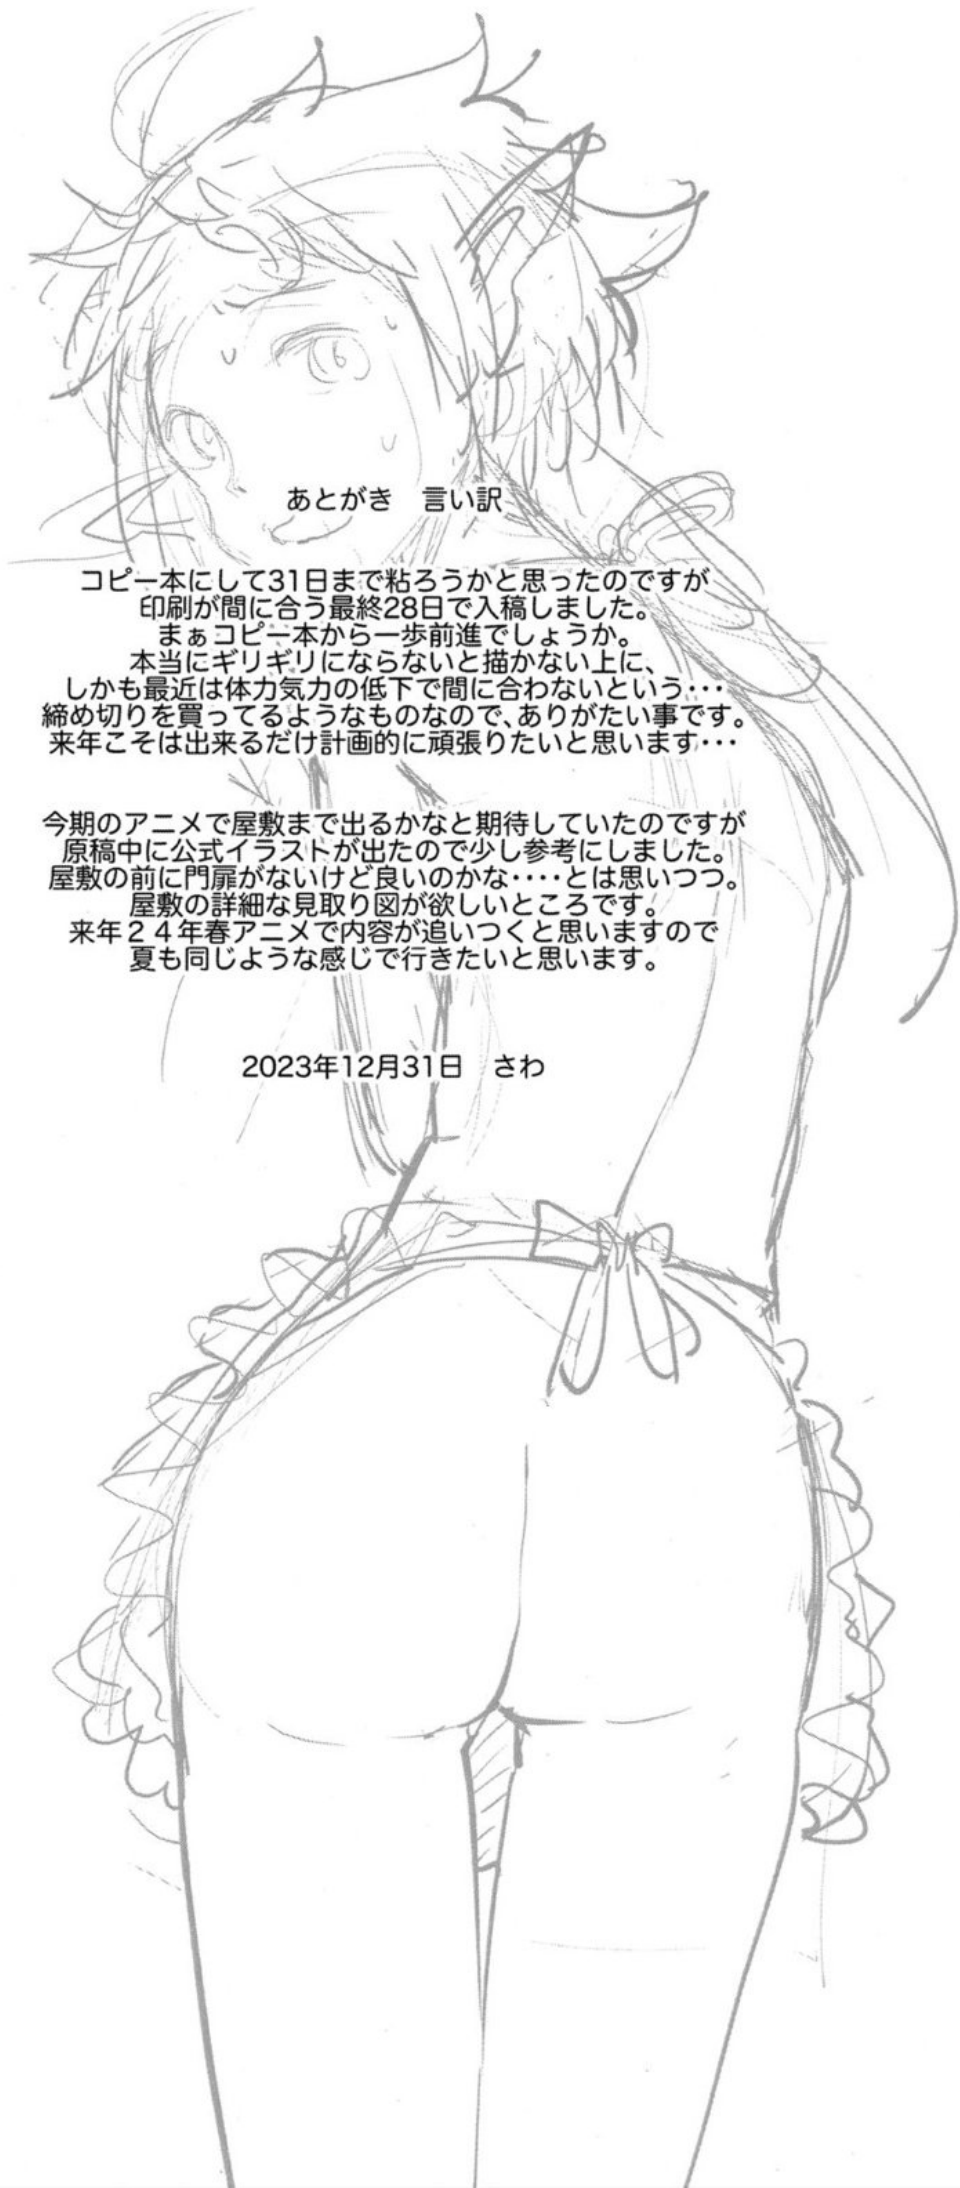 あとがき　言い訳
コピー本にして31日まで粘ろうかと思ったのですが
印刷が間に合う最終28日で入稿しました。
まぁコピー本から一歩前進でしょうか。
本当にギリギリにならないと描かない上に、
しかも最近は体力気力の低下で間に合わないという･･･
締め切りを買ってるようなものなので、ありがたい事です。
来年こそは出来るだけ計画的に頑張りたいと思います･･･
今期のアニメで屋敷まで出るかなと期待していたのですが
原稿中に公式イラストが出たので少し参考にしました。
屋敷の前に門扉がないけど良いのかな････とは思いつつ。
屋敷の詳細な見取り図が欲しいところです。
来年２４年春アニメで内容が追いつくと思いますので
夏も同じような感じで行きたいと思います。
2023年12月31日　さわ